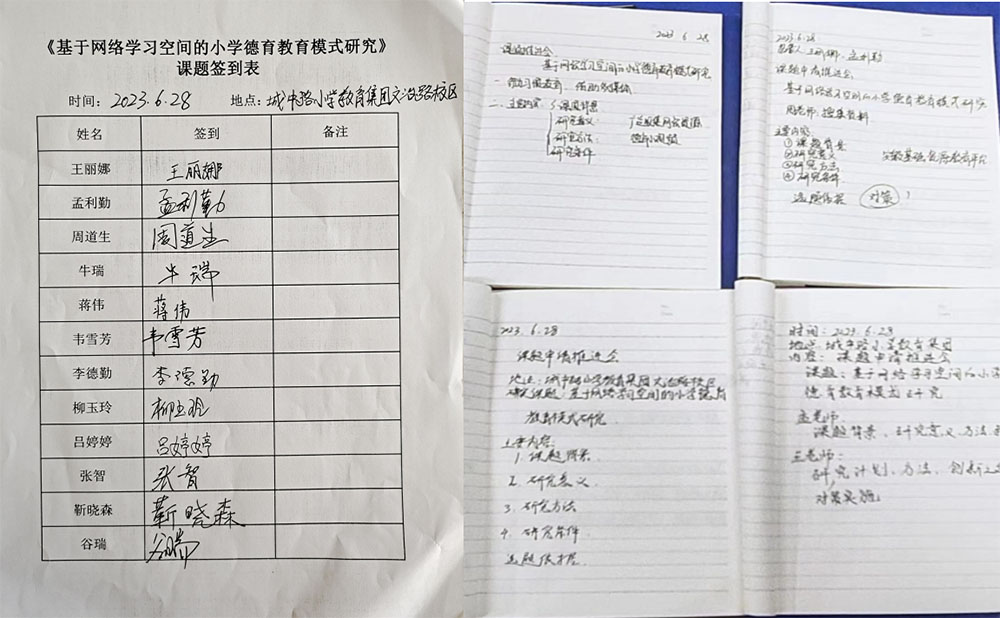 《基于网络学习空间的小学德育教育模式研究》
课题签到表
时间：2023.6.28 地点：城中路小学教育集团文治路校区
姓名 签到 备注
王丽娜 王丽娜
孟利勤 孟利勤
周道生 周道生
牛瑞 牛瑞
蒋伟 蒋伟
韦雪芳 韦雪芳
李德勤 李德勤
柳玉玲 柳玉玲
吕婷婷 吕婷婷
张智 张智
靳晓森 靳晓森
谷瑞 谷瑞
2023 6 28
课题推进会
基于网络学习空间的小学德育教育模式研究
二、主要内容
课题背景
研究意义
研究方法
研究条件
2023.6.28
王丽娜 孟利勤
课题申请推进会
基于网络学习空间的小学德育教育模式研究
周老师：搜集资料
主要内容：
① 课题背景
② 研究意义
③ 研究方法
④ 研究条件
选题依据 对策
2023.6.28
课题申请推进会
地点：城中路小学教育集团文治路校区
课题：基于网络学习空间的小学德育
教育模式研究
主要内容：
1. 课题背景
2. 研究意义
3. 研究方法
4. 研究条件
选题依据
时间：2023.6.28
地点：城中路小学教育集团
内容：课题申请推进会
课题：基于网络学习空间的小学
德育教育模式研究
孟老师：
课题背景、研究意义、方法
王老师：
研究计划、方法、创新之
对策实施